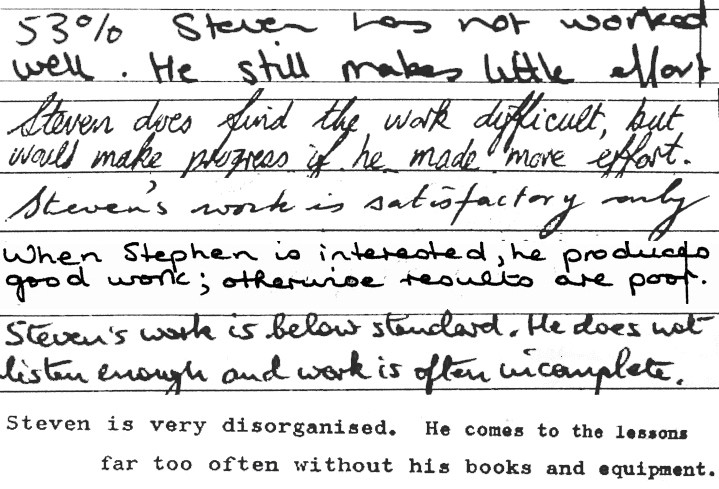 53% Steven has not worked
well. He still makes little effort
Steven does find the work difficult, but
would make progress if he made more effort.
Steven's work is satisfactory only
When Stephen is interested, he produces
good work; otherwise results are poor.
Steven's work is below standard. He does not
listen enough and work is often incomplete.
Steven is very disorganised. He comes to the lessons
far too often without his books and equipment.